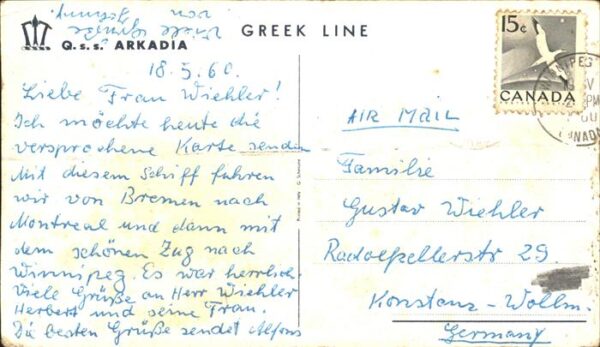 Viele Grüße
von
Q.s.s. ARKADIA
GREEK LINE
18.5.60.
Liebe Frau Wiehler!
Ich möchte heute die
versprochene Karte senden
Mit diesem Schiff fuhren
wir von Bremen nach
Montreal und dann mit
dem schönen Zug nach
Winnipeg. Es war herrlich.
Viele Grüße an Herr Wiehler
Herbert und seine Frau.
Die besten Grüße sendet Alfons
15c
CANADA
NIPEG
PM
CANADA
AIR MAIL
Familie
Gustav Wiehler
Radolfzellerstr 29.
Konstanz-Wollm.
Germany